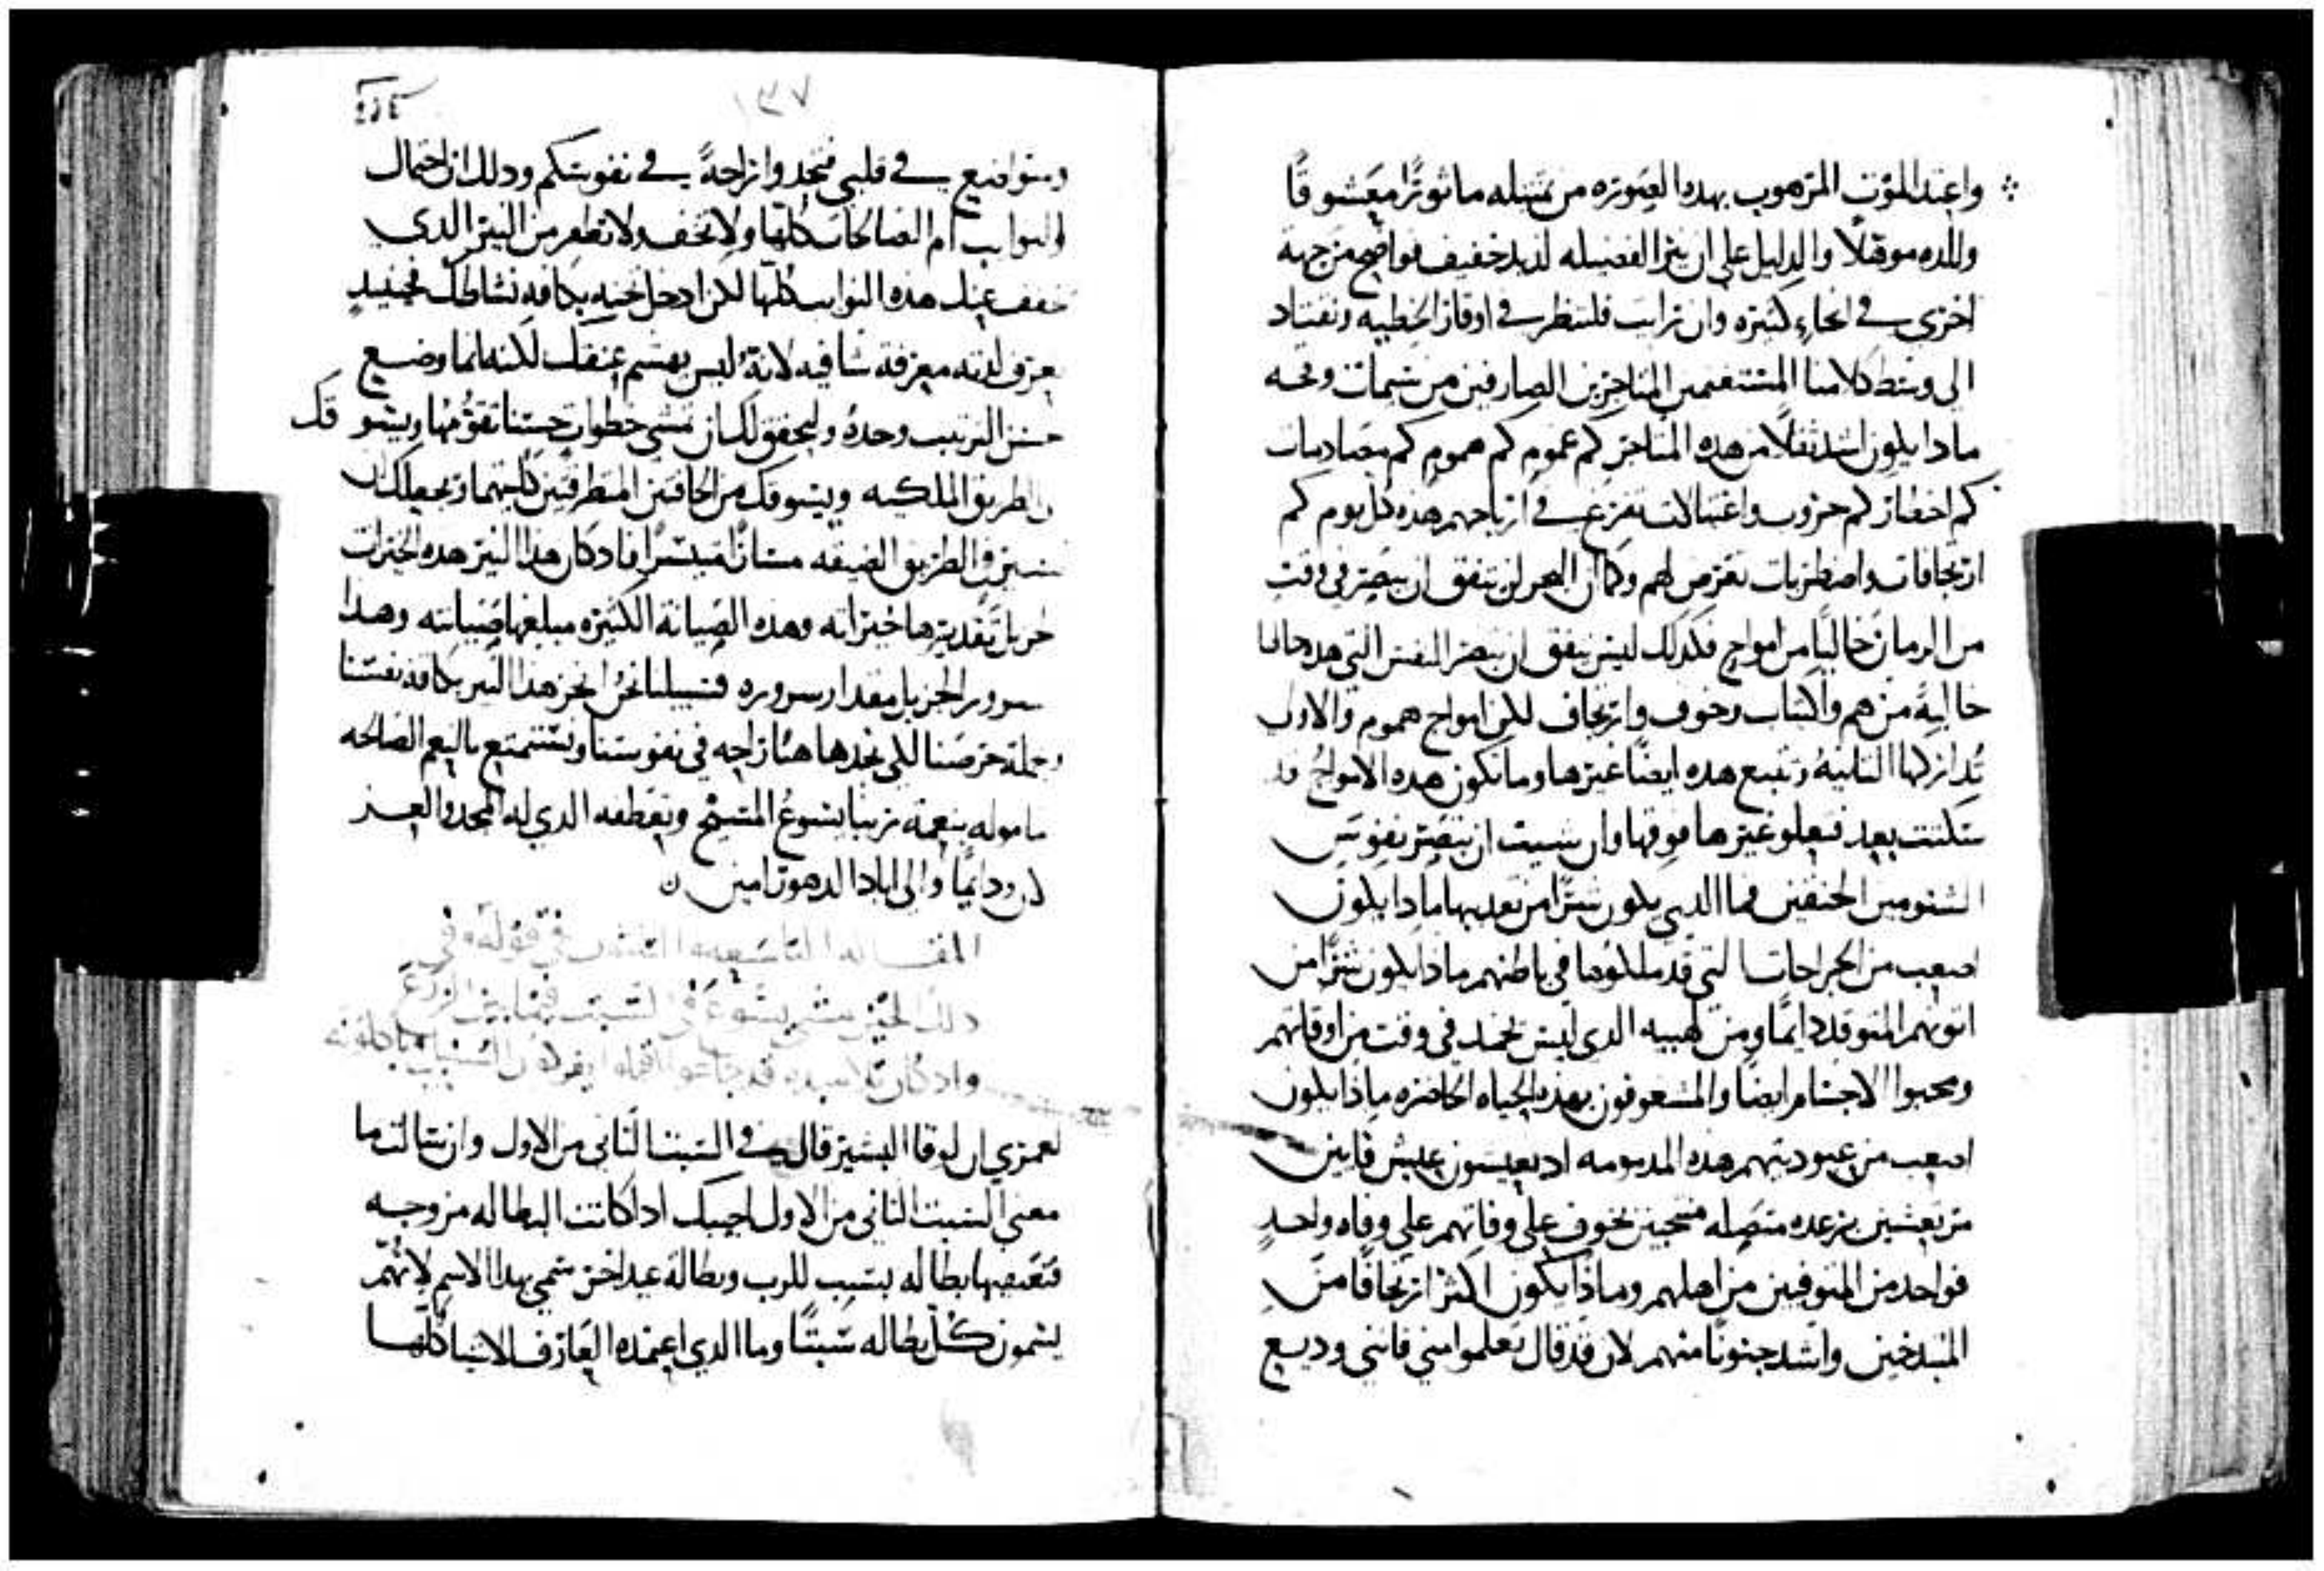 واعتد الموت المرهوب بهده الصوره من تمثيله ماثورًا معشوقًا
واللده موهلًا والدليل على ان نير الفضيله لديد خفيف فواضح من جهه
اخرى في انحاءٍ كثيره وان رايت فلننظر في اوقار الخطيه ونقتاد
الى وسط كلامنا المستغنمين المتاجرين الصارفين من شمات وقحه
مادا يكون اشد ثقلًا من هده المتاجر كم غموم كم هموم كم مصادمات
كم اخطار كم حروب واغتيالات تفرع في ارباحهم هده كل يوم كم
ارتجافات واضطربات تعرض لهم وكما ان البحر لن يتفق ان يبصر في وقت
من الزمان خاليًا من امواج فكدلك ليس يتفق ان تبصر النفس التي هده حالها
خاليةً من هم واكتاب وخوف وارتجاف لكن امواج هموم والاول
تداركها الثانيهُ وتتبع هده ايضًا غيرها وما تكون هده الامواجُ قد
سكنت بعد فتعلو غيرها فوقها وان شيت ان تبصر نفوس
الشتومين الحنقين فما الدي يكون شرًا من تعديبها مادا يكون
اصعب من الجراحات التي قد ملكوها في باطنهم مادا يكون شرًا من
اتونهم المتوقد دايمًا ومن لهيبه الدي ليس يخمد في وقت من اوقاتهم
ومحبوا الاجسام ايضًا والمشعوفون بهده الحياه الحاضره مادا يكون
اصعب من عبوديتهم هده المدمومه اد يعيشون عيش قايين
مرتعشين برعده متصله منتحبين بخوف على وفاتهم على وفاه واحدٍ
فواحد من المتوفيين من اهلهم ومادا يكون اكثر ارتجافًا من
المتبدخين واشد جنونًا منهم لان قد قال تعلموا مني فانني وديع
١٣٧
ومتواضع في قلبي فتجدوا راحةً في نفوسكم ودلك ان احتمال
النوايب ام الصالحات كلها ولا تخف ولا تطفر من النير الدي
يخفف عنك هده النوايب كلها لكن ادخل تحته بكافه نشاطك فحينيدٍ
تعرف لدته معرفة شافيه لانهُ ليس يهشم عنقك لكنه انما وضع
حسن الترتيب وحدهُ وليحقق لك ان تمشي خطواتٍ حسنا تقوُّمها ويسوقك
الى الطريق الملكيه ويسوقك من الحافتين المتطرفتين كلتيهما ويجعلك ان
تسير في الطريق الضيقه مسارًا متيسرًا فاد كان هدا النير هده الخيرات
الجزيل تقديرها خيراته وهده الصيانة الكثيره مبلغها صيانته وهدا
السرور الجزيل مقدار سروره فسبيلنا نحن ان نجر هدا النير بكافه نفسنا
وجملة حرصنا لكي نجد هاهنا راحه في نفوسنا ونستمتع بالنعم الصالحه
مامولهِ بنعمة ربنا يسوعُ المسيح وتعطفه الدي له المجد والعز
الان ودايمًا والى اباد الدهور امين ن
المقاله التاسعه والثلثون في قوله وفي
دلك الحين مشى يسوع في السبت فيما بين الزرع
واد كان تلاميده قد جاعوا اقبلوا يفركون السنبل وياكلونه
لعمري ان لوقا البشير قال في السبت الثاني من الاول وان سالت ما
معنى السبت الثاني من الاول اجيبك ادا كانت البطاله مزوجه
فتعتصها بطاله بسبب للرب وبطالة عيد اخر سمي بهدا الاسم لانهم
يسمون كل بطاله سبتًا وما الدي اعتمده العارف الاشيا كلها